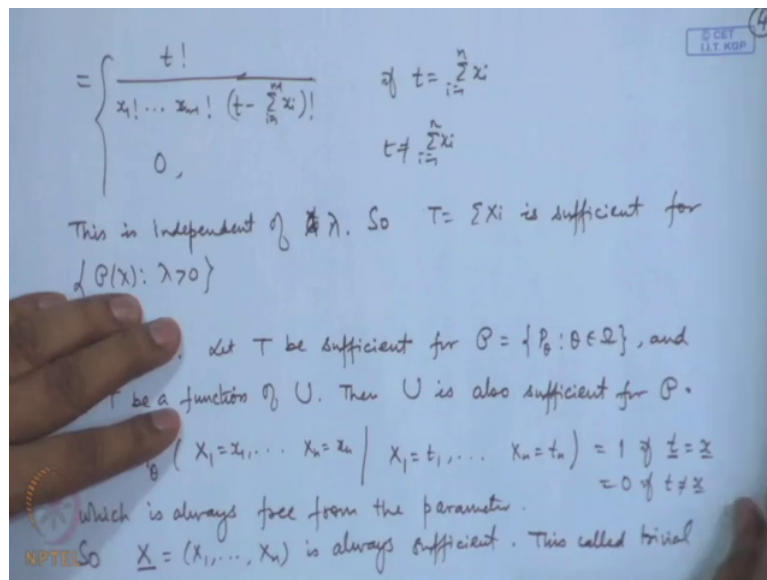 4
© CET
I.I.T. KGP
= { t! / x₁! ... xₙ₋₁! (t - Σxᵢ)! if t = Σⁿᵢ₌₁ xᵢ
0, t ≠ Σⁿᵢ₌₁ xᵢ
This is independent of λ. So T = ΣXi is sufficient for
{P(λ): λ>0}
. Let T be sufficient for P = {P_θ : θ ∈ Ω}, and
T be a function of U. Then U is also sufficient for P.
θ ( X₁ = x₁, ... Xₙ = xₙ | X₁ = t₁, ... Xₙ = tₙ ) = 1 if t = x
= 0 if t ≠ x
which is always free from the parameter.
So X = (X₁, ..., Xₙ) is always sufficient. This called trivial
NPTEL